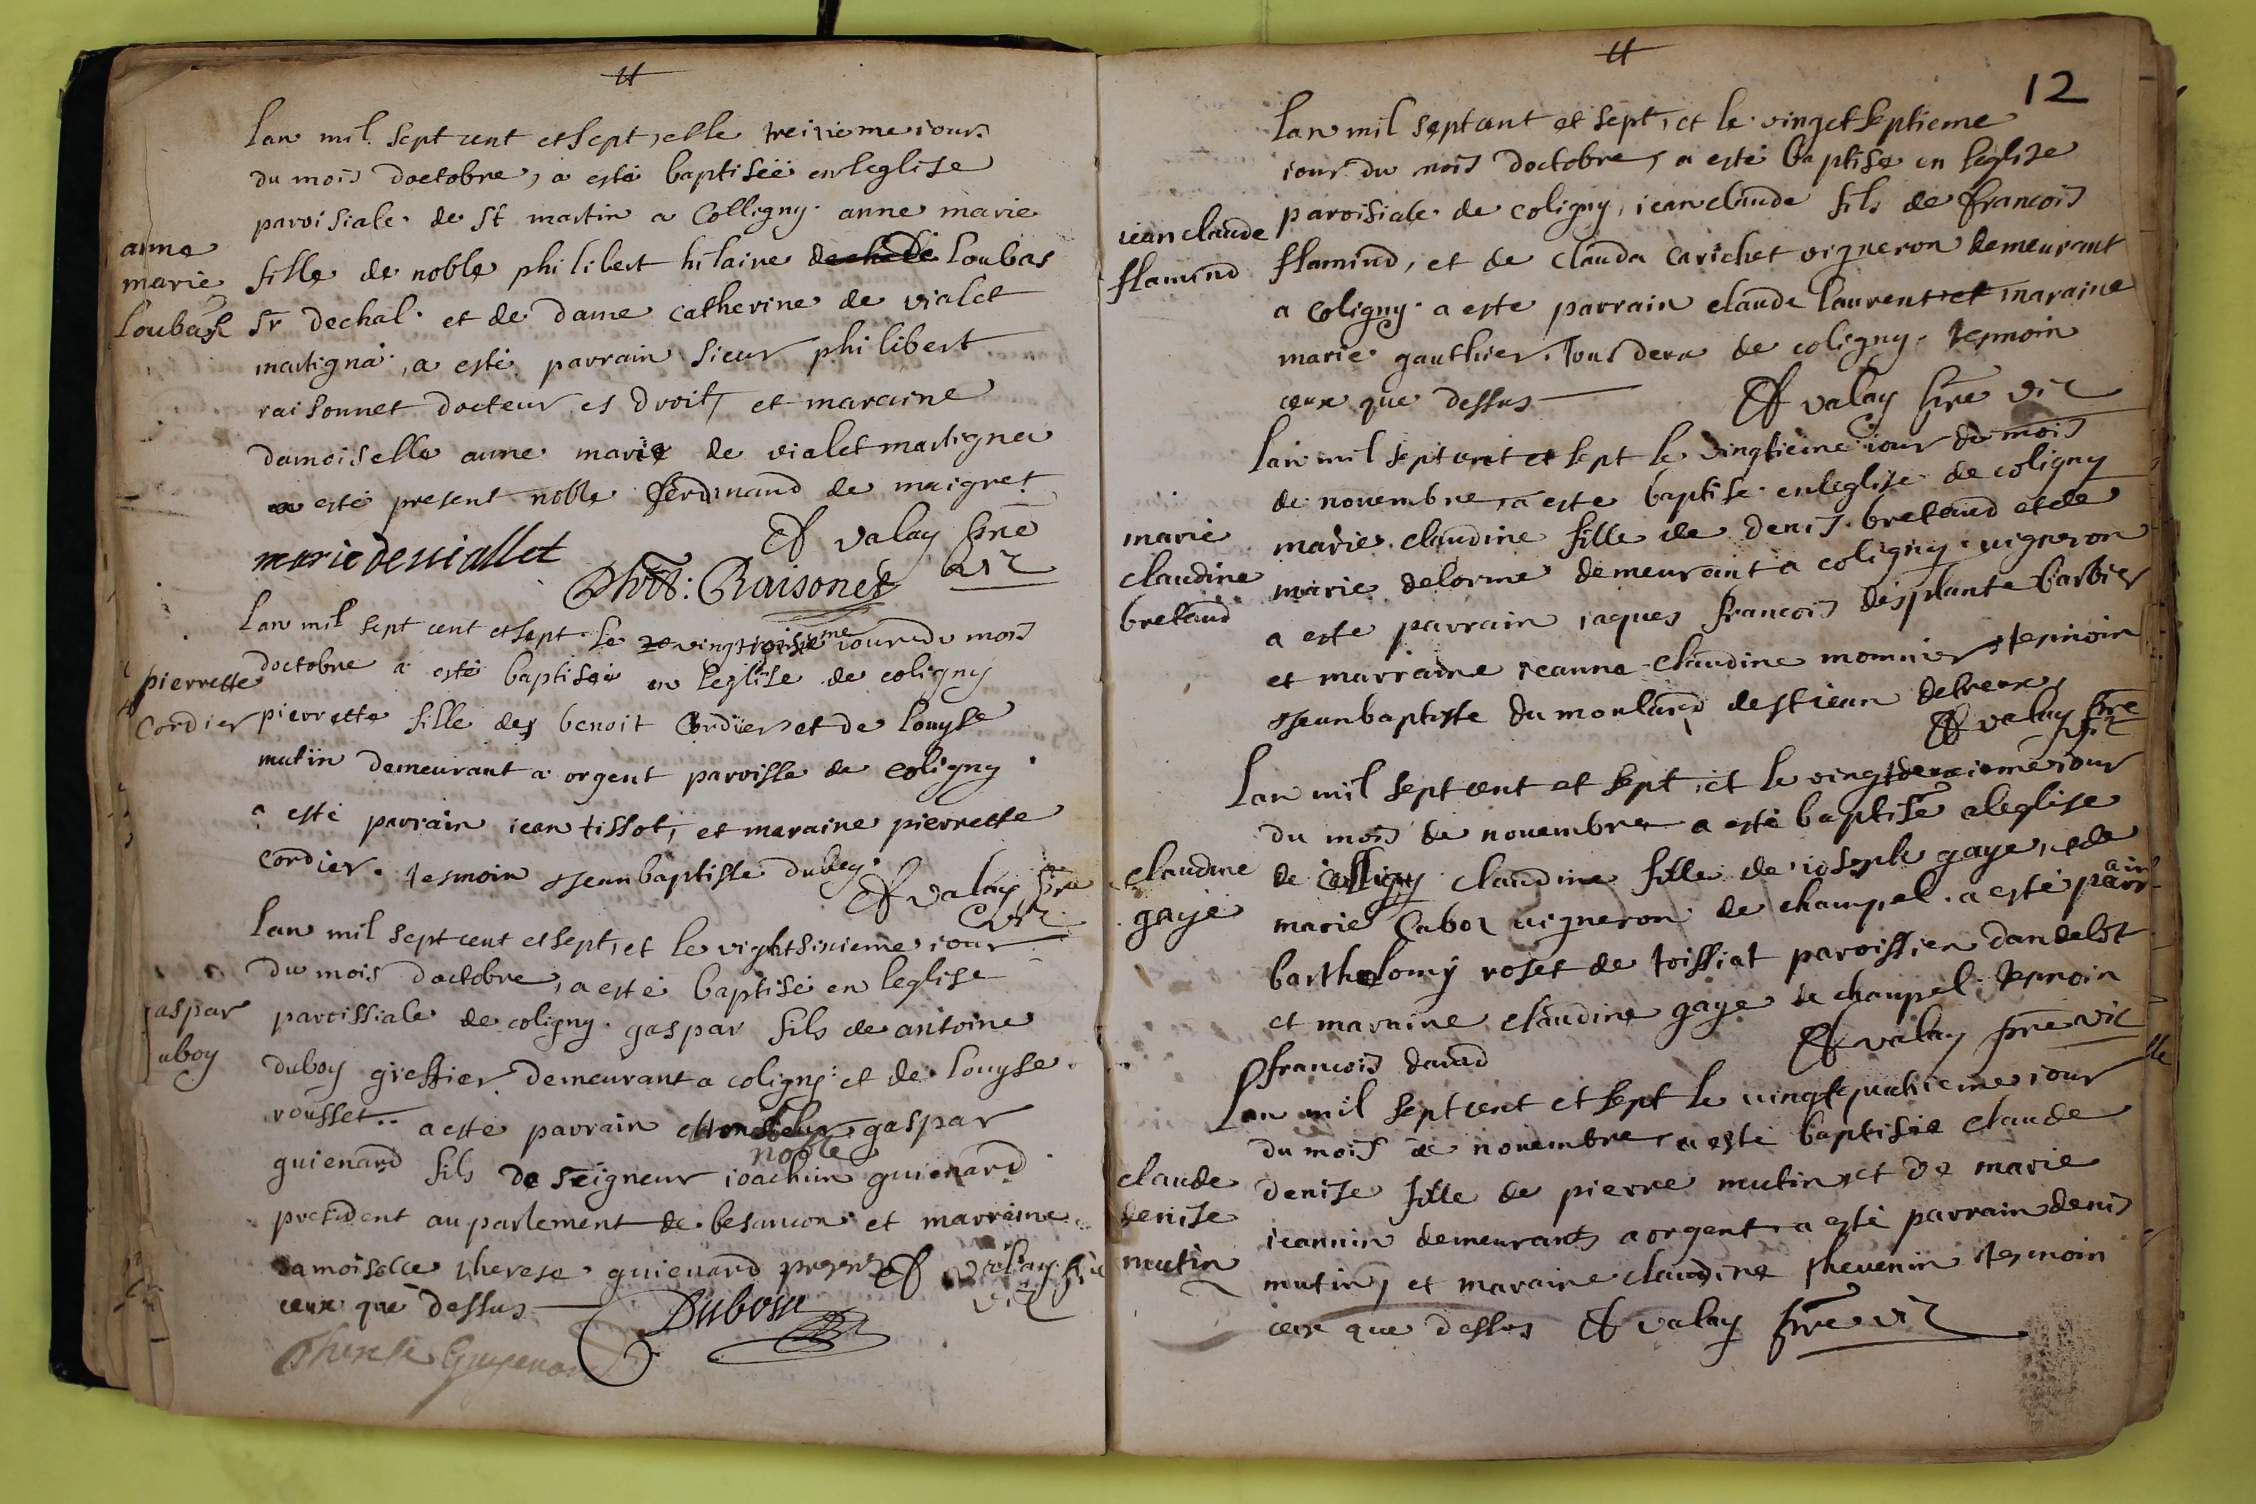 lan mil sept cent et sept, et le treizieme iour
du mois doctobre, a esté baptiseé en leglise
paroisiale de st martin a Colligny anne marie
anne
marie
Loubas
fille de noble philibert hilaire Loubas
Sr dechal et de dame catherine de vialet
martigna, a esté parrain sieur philibert
raisonnet docteur es droit, et maraine
damoiselle anne marie de vialet martigna
a esté present noble ferdinand de maigret
valay ptre
vic
marie de viallet
Phbt: Raisonet
Lan mil sept cent et sept le vingtroisieme iour du mois
doctobre a esté baptiseé en leglise de coligny
pierrette
Cordier
pierrette fille de benoit Cordier et de Louyse
mutin demeurant a orgent paroisse de coligny
a esté parrain iean tissot, et maraine pierrette
cordier. tesmoin Jeanbaptiste duboy
valay ptre
vic
lan mil sept cent et sept, et le vightsixieme iour
du mois doctobre, a esté baptisé en leglise
gaspar
duboy
paroissiale de coligny gaspar fils de antoine
duboy greffier demeurant a coligny et de Louyse
rousset a esté parrain gaspar
noble
guienard fils de seigneur ioachim guienard
president au parlement de besancon et marraine
damoiselle therese guienard present valay ptre
vic
ceux que dessus
Duboy
Therese Guyenard
12
lan mil sept cent et sept, et le vingtseptieme
iour du mois doctobre, a esté baptise en leglise
iean claude
flamind
paroisiale de coligny, iean claude fils de francois
flamind, et de clauda carichet vigneron demeurant
a coligny a este parrain claude laurent et maraine
marie gauthier. Tous deux de coligny. tesmoin
ceux que dessus
valay ptre vic
lan mil sept cent et sept le vingtieme iour du mois
de nouembre, a este baptise en leglise de coligny
marie
claudine
bretaud
marie claudine fille de denis bretaud et de
marie delorme demeurant a coligny vigneron
a este parrain iaques francois desplante barbier
et marraine ieanne claudine momnier tesmoin
Jeanbaptiste du moulard de st iean detreux
valay ptre
vic
lan mil sept cent et sept, et le vingtdeuxieme iour
du mois de nouembre a esté baptise a leglise
claudine
gaye
de colligny claudine fille de ioseph gaye, et de
marie cabot vigneron de champel. a esté parrain
bartholomy roset de toissiat paroissien dandelot
et maraine claudine gaye de champel. tesmoin
francois dauid
valay ptre vic
Lan mil sept cent et sept le vingtquatrieme iour
du mois de nouembre, a esté baptiseé claude
claude
denise
mutin
denise fille de pierre mutin et de marie
ieannin demeurants a orgent, a esté parrain denis
mutin, et maraine claudine theuenin tesmoin
ceux que dessus valay ptre vic